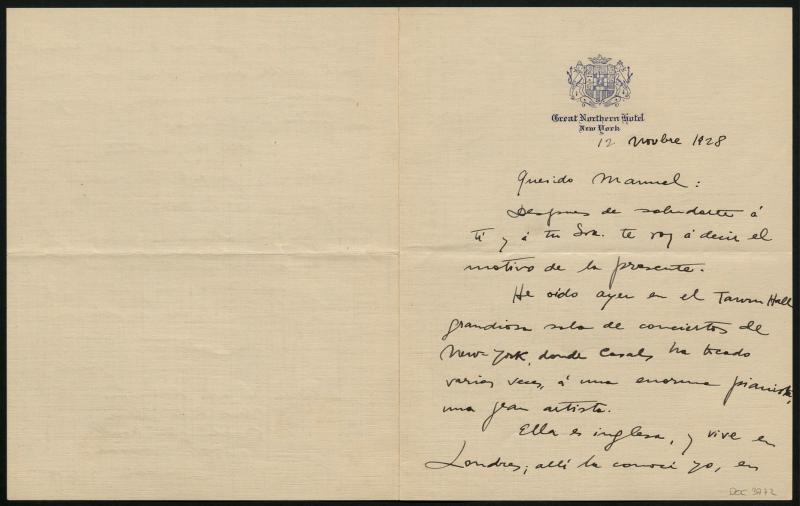 Great Northern Hotel
New York
12 Novbre 1928
Querido Manuel:
Despues de saludarte á
ti y á tu Sra. te voy á decir el
motivo de la presente.
He oído ayer en el Tawn Hall
grandiosa sala de conciertos de
New-York, donde Casals ha tocado
varias veces, á una enorme pianista,
una gran artista.
Ella es inglesa, y vive en
Londres; allí la conocí yo, en
DOC 3972